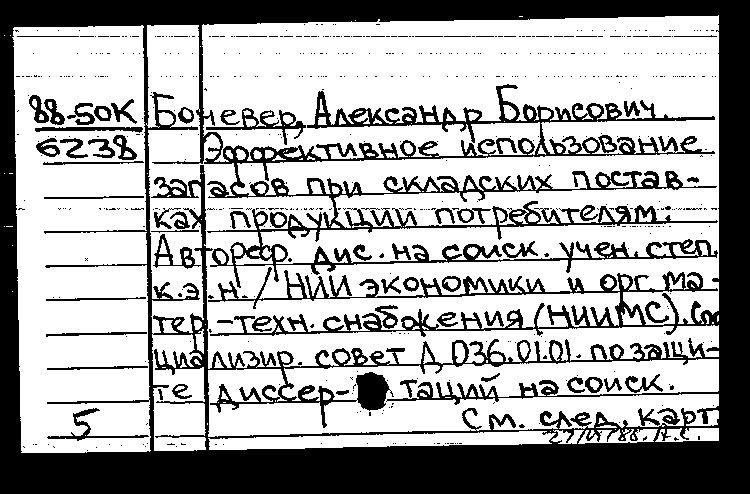 88-50К Боневер, Александр Борисович.
6238 Эффективное использование
запасов при складских постав-
ках продукции потребителям:
Автореф. дис. на соиск. учен. степ.
к.э.н. / НИИ экономики и орг. ма-
тер.-техн. снабжения (НИИМС). Спе
циализир. совет Д 036.01.01. по защи-
те диссер- таций на соиск.
5 См. след. карт.